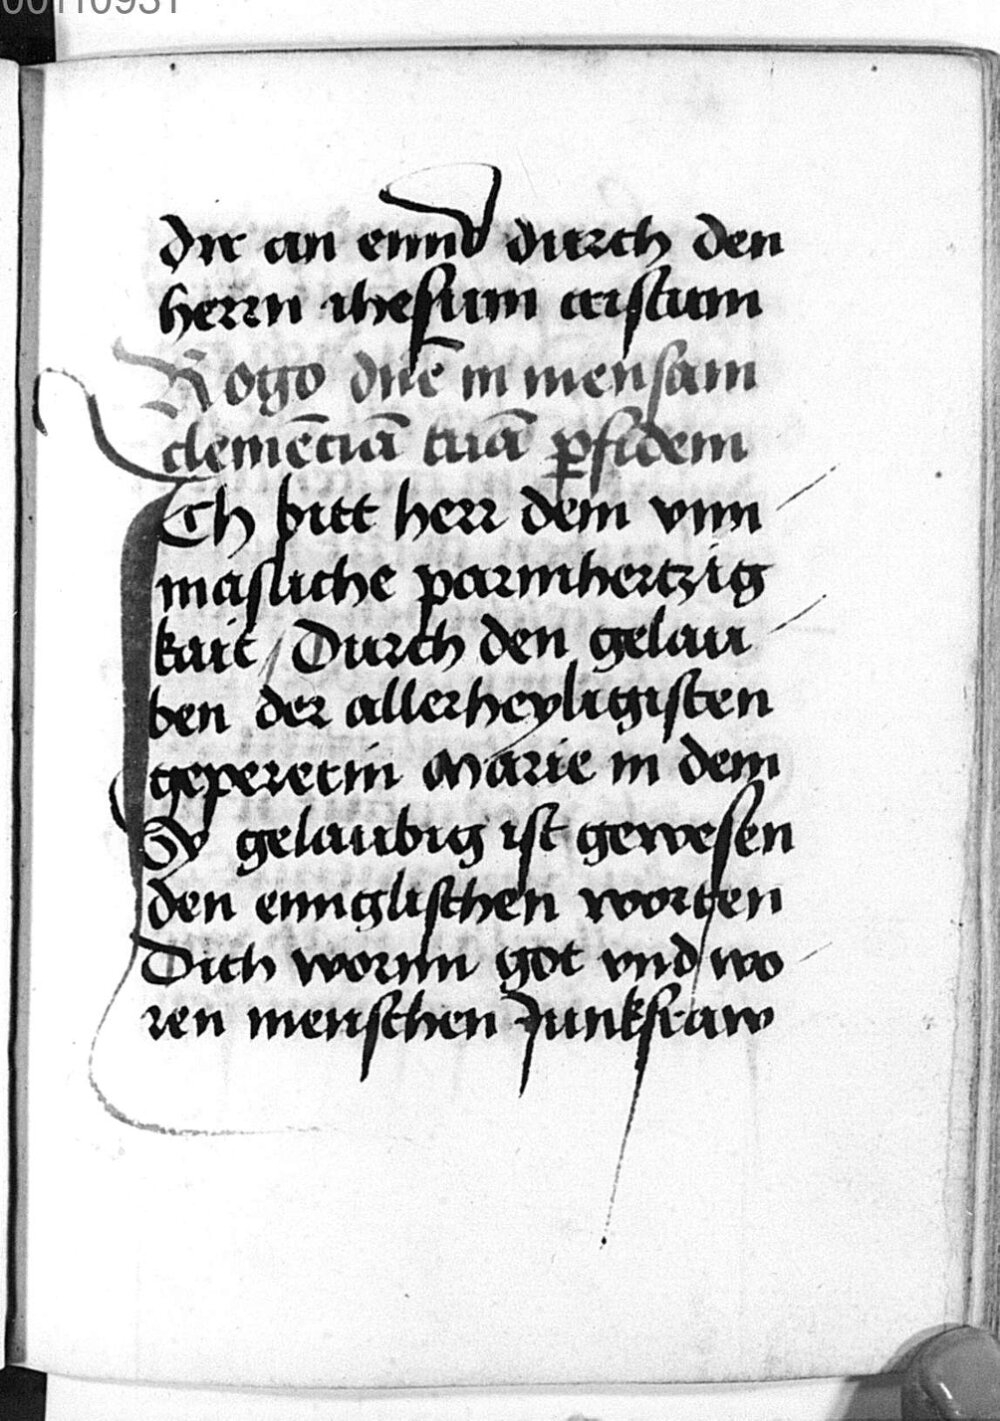 00110931
dir an ennd durch den
herrn ihesum cristum
Rogo dn̄e in mensam
clemēciā tuā ꝑfidem
Ich bitt herr dein vnn
masliche parmhertzig
kait / Durch den gelau
ben der allerheyligisten
gepererin Marie in dem
Sy gelaubig ist gewesen
denennglischen worten
Dich wornn got vnd wo
ren menschen Junkfraw